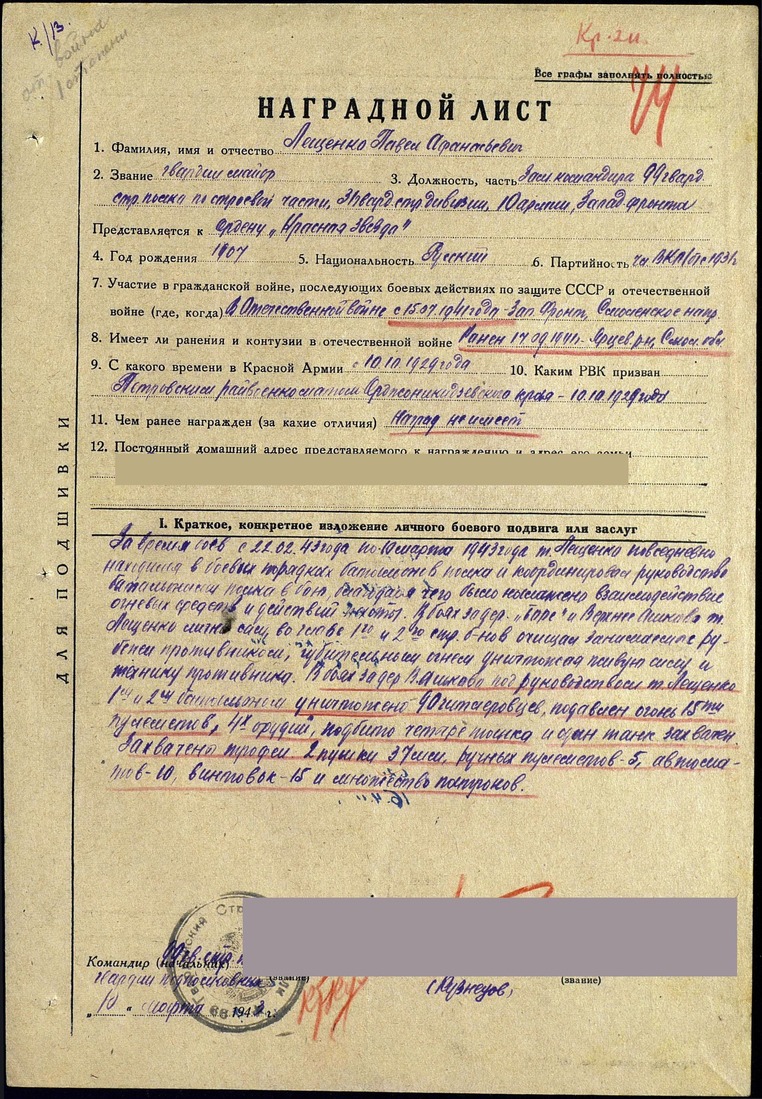 К/В.
Кр. зн.
Все графы заполнять полностью
НАГРАДНОЙ ЛИСТ
1. Фамилия, имя и отчество Лещенко Павел Афанасьевич
2. Звание гвардии майор 3. Должность, часть Зам. командира 99 гвард
стр. полка по строевой части, 31 гвард. стр. дивизии, 10 армии, Запад. фронта
Представляется к ордену „Красная Звезда"
4. Год рождения 1907 5. Национальность Русский 6. Партийность чл. ВКП(б) с 1931г.
7. Участие в гражданской войне, последующих боевых действиях по защите СССР и отечественной
войне (где, когда) В Отечественной войне с 15.07.1941 года - Зап. Фронт, Смоленское напр.
8. Имеет ли ранения и контузии в отечественной войне Ранен 17.09.1941г. Ярцев. рн, Смол. обл
9. С какого времени в Красной Армии с 10.10.1929 года 10. Каким РВК призван
Петровским райвоенкоматом Орджоникидзевского края - 10.10.1929 года
11. Чем ранее награжден (за какие отличия) Наград не имеет
12. Постоянный домашний адрес представляемого к награждению и адрес его семьи
I. Краткое, конкретное изложение личного боевого подвига или заслуг
За время боев с 22.02.43 года по 10 марта 1943 года т. Лещенко повседневно
находился в боевых порядках батальонов полка и координировал руководство
батальонами полка в бою, благодаря чего было налажено взаимодействие
огневых средств и действий пехоты. В боях за дер. и Верхнее Ашково т.
Лещенко лично сам, во главе 1го и 2го стр. б-нов очищал занимаемые ру-
бежи противником, губительным огнем уничтожал живую силу и
технику противника. В боях за дер В. Ашково под руководством т. Лещенко
1м и 2м батальоном уничтожено 90 гитлеровцев, подавлен огонь 15ти
пулеметов, 4х орудий, подбито четыре танка и один танк захвачен
Захвачено трофеи 2 пушки 37 мм, ручных пулеметов - 5, автома-
тов - 10, винтовок - 15 и множество патронов.
Командир (начальник) 99 гв. стр.
гвардии подполковник (звание) (Кузнецов) (звание)
„10" марта 1943 г.
ДЛЯ ПОДШИВКИ